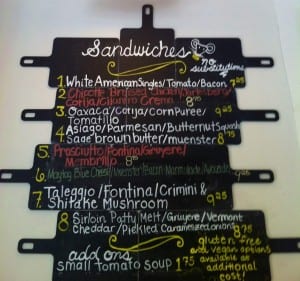 Sandwiches
no
substitutions
1 White American Singles/Tomato/Bacon 7.25
2 Chipotle Braised Chicken/
Cotija/Cilantro Crema 8.75
3 Oaxaca/Cotija/Corn Puree/ 9.25
Tomatillo
4 Asiago/Parmesan/Butternut Squash
Sage brown butter/muenster 8.75
5. Prosciutto/Fontina/Gruyere/
Membrillo 8.
6. Maytag Blue Cheese/Muenster/Bacon Marmalade/Avocado
7. Taleggio/Fontina/Crimini &
Shitake Mushroom 9.25
8 Sirloin Patty Melt/Gruyere/Vermont
Cheddar/Pickled Caramelized onions 8.75
add ons
small Tomato Soup 1.75
gluten free
and vegan options
available at
additional
cost!